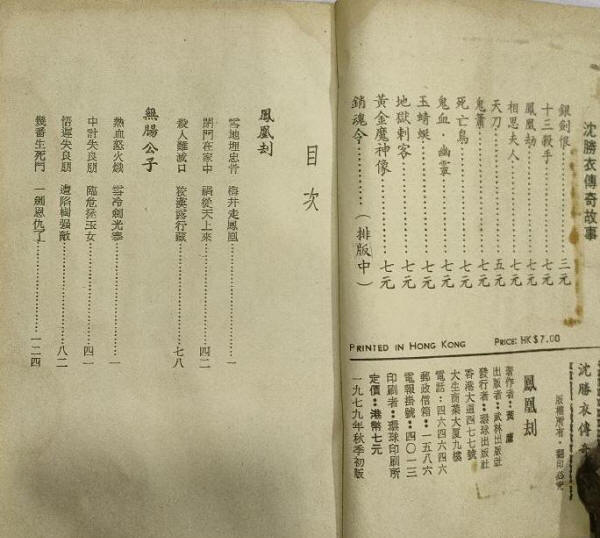 沈勝衣傳奇故事
銀劍恨……三元
十三殺手……七元
鳳凰劫……七元
相思夫人……七元
天刀……五元
鬼簫……七元
死亡鳥……七元
鬼血·幽靈……七元
玉蜻蜓……七元
地獄刺客……七元
黃金魔神像……七元
銷魂令……（排版中）
PRINTED IN HONG KONG PRICE: HK$7.00
沈勝衣傳奇
版權所有·翻印必究
鳳凰刧
著作者：黃鷹
出版者：武林出版社
發行者：環球出版社
香港大道西四七七號
大生商業大厦九樓
電話：四六四六四六
郵政信箱：一五八六
電報掛號：四〇一三
印刷者：環球印刷所
定價：港幣七元
一九七九年秋季初版
目次
鳳凰刧
雪地埋忠骨 癈井走鳳凰……一
閉門在家中 禍從天上來……四二
殺人難滅口 狡婆露行蹤……七八
無腸公子
熱血怒火熾 雪冷劍光寒……一
中計失良朋 臨危拯玉女……四一
悟遲失良朋 遭陷樹強敵……八二
幾番生死鬥 一劍恩仇了……一二四